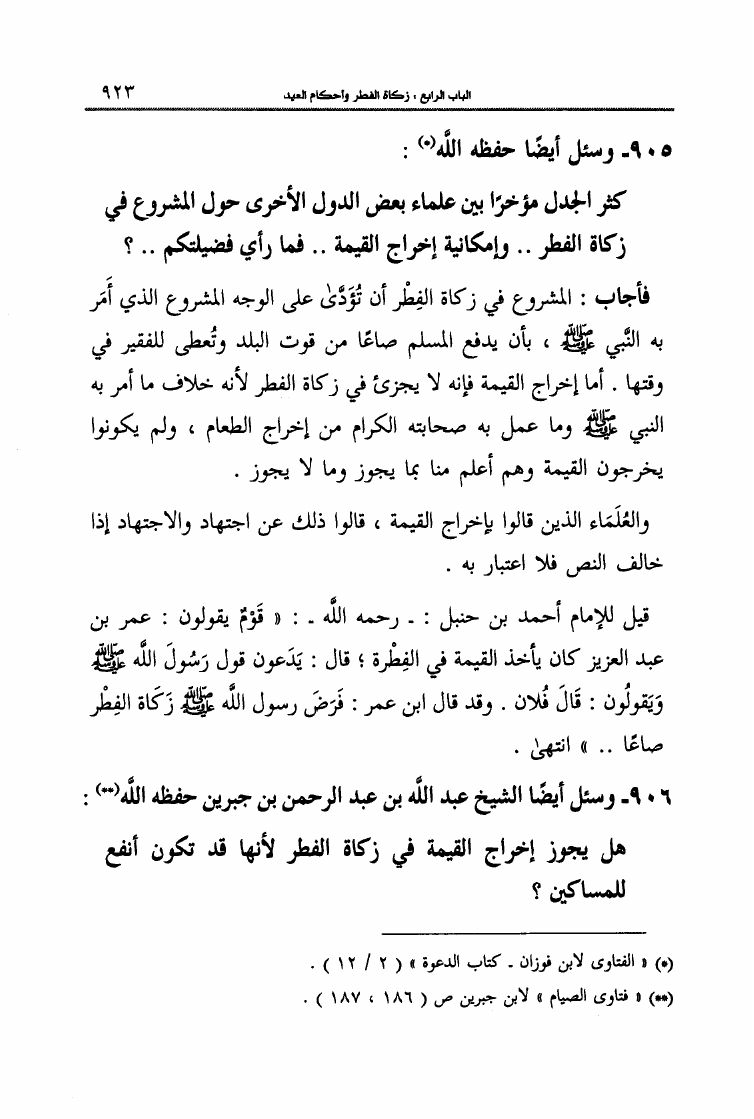 الباب الرابع : زكاة الفطر وأحكام العيد ٩٢٣
٩٠٥ـ وسئل أيضًا حفظه اللَّه(*) :
كثر الجدل مؤخرًا بين علماء بعض الدول الأخرى حول المشروع في
زكاة الفطر .. وإمكانية إخراج القيمة .. فما رأي فضيلتكم .. ؟
فأجاب : المشروع في زكاة الفِطْر أن تُؤَدَّىٰ على الوجه المشروع الذي أَمَر
به النَّبي ﷺ ، بأن يدفع المسلم صاعًا من قوت البلد وتُعطى للفقير في
وقتها . أما إخراج القيمة فإنه لا يجزئ في زكاة الفطر لأنه خلاف ما أمر به
النبي ﷺ وما عمل به صحابته الكرام من إخراج الطعام ، ولم يكونوا
يخرجون القيمة وهم أعلم منا بما يجوز وما لا يجوز .
والعُلَمَاء الذين قالوا بإخراج القيمة ، قالوا ذلك عن اجتهاد والاجتهاد إذا
خالف النص فلا اعتبار به .
قيل للإمام أحمد بن حنبل : ـ رحمه اللَّه ـ : « قَوْمٌ يقولون : عمر بن
عبد العزيز كان يأخذ القيمة في الفِطْرة ؛ قال : يَدَعون قول رَسُولَ اللَّه ﷺ
وَيَقولُون : قَالَ فُلان . وقد قال ابن عمر : فَرَضَ رسول اللَّه ﷺ زَكَاة الفِطْر
صاعًا .. » انتهىٰ .
٩٠٦ـ وسئل أيضًا الشيخ عبد اللَّه بن عبد الرحمن بن جبرين حفظه اللَّه(**) :
هل يجوز إخراج القيمة في زكاة الفطر لأنها قد تكون أنفع
للمساكين ؟
(*) « الفتاوى لابن فوزان ـ كتاب الدعوة » ( ٢ / ١٢ ) .
(**) « فتاوى الصيام » لابن جبرين ص ( ١٨٦ ، ١٨٧ ) .